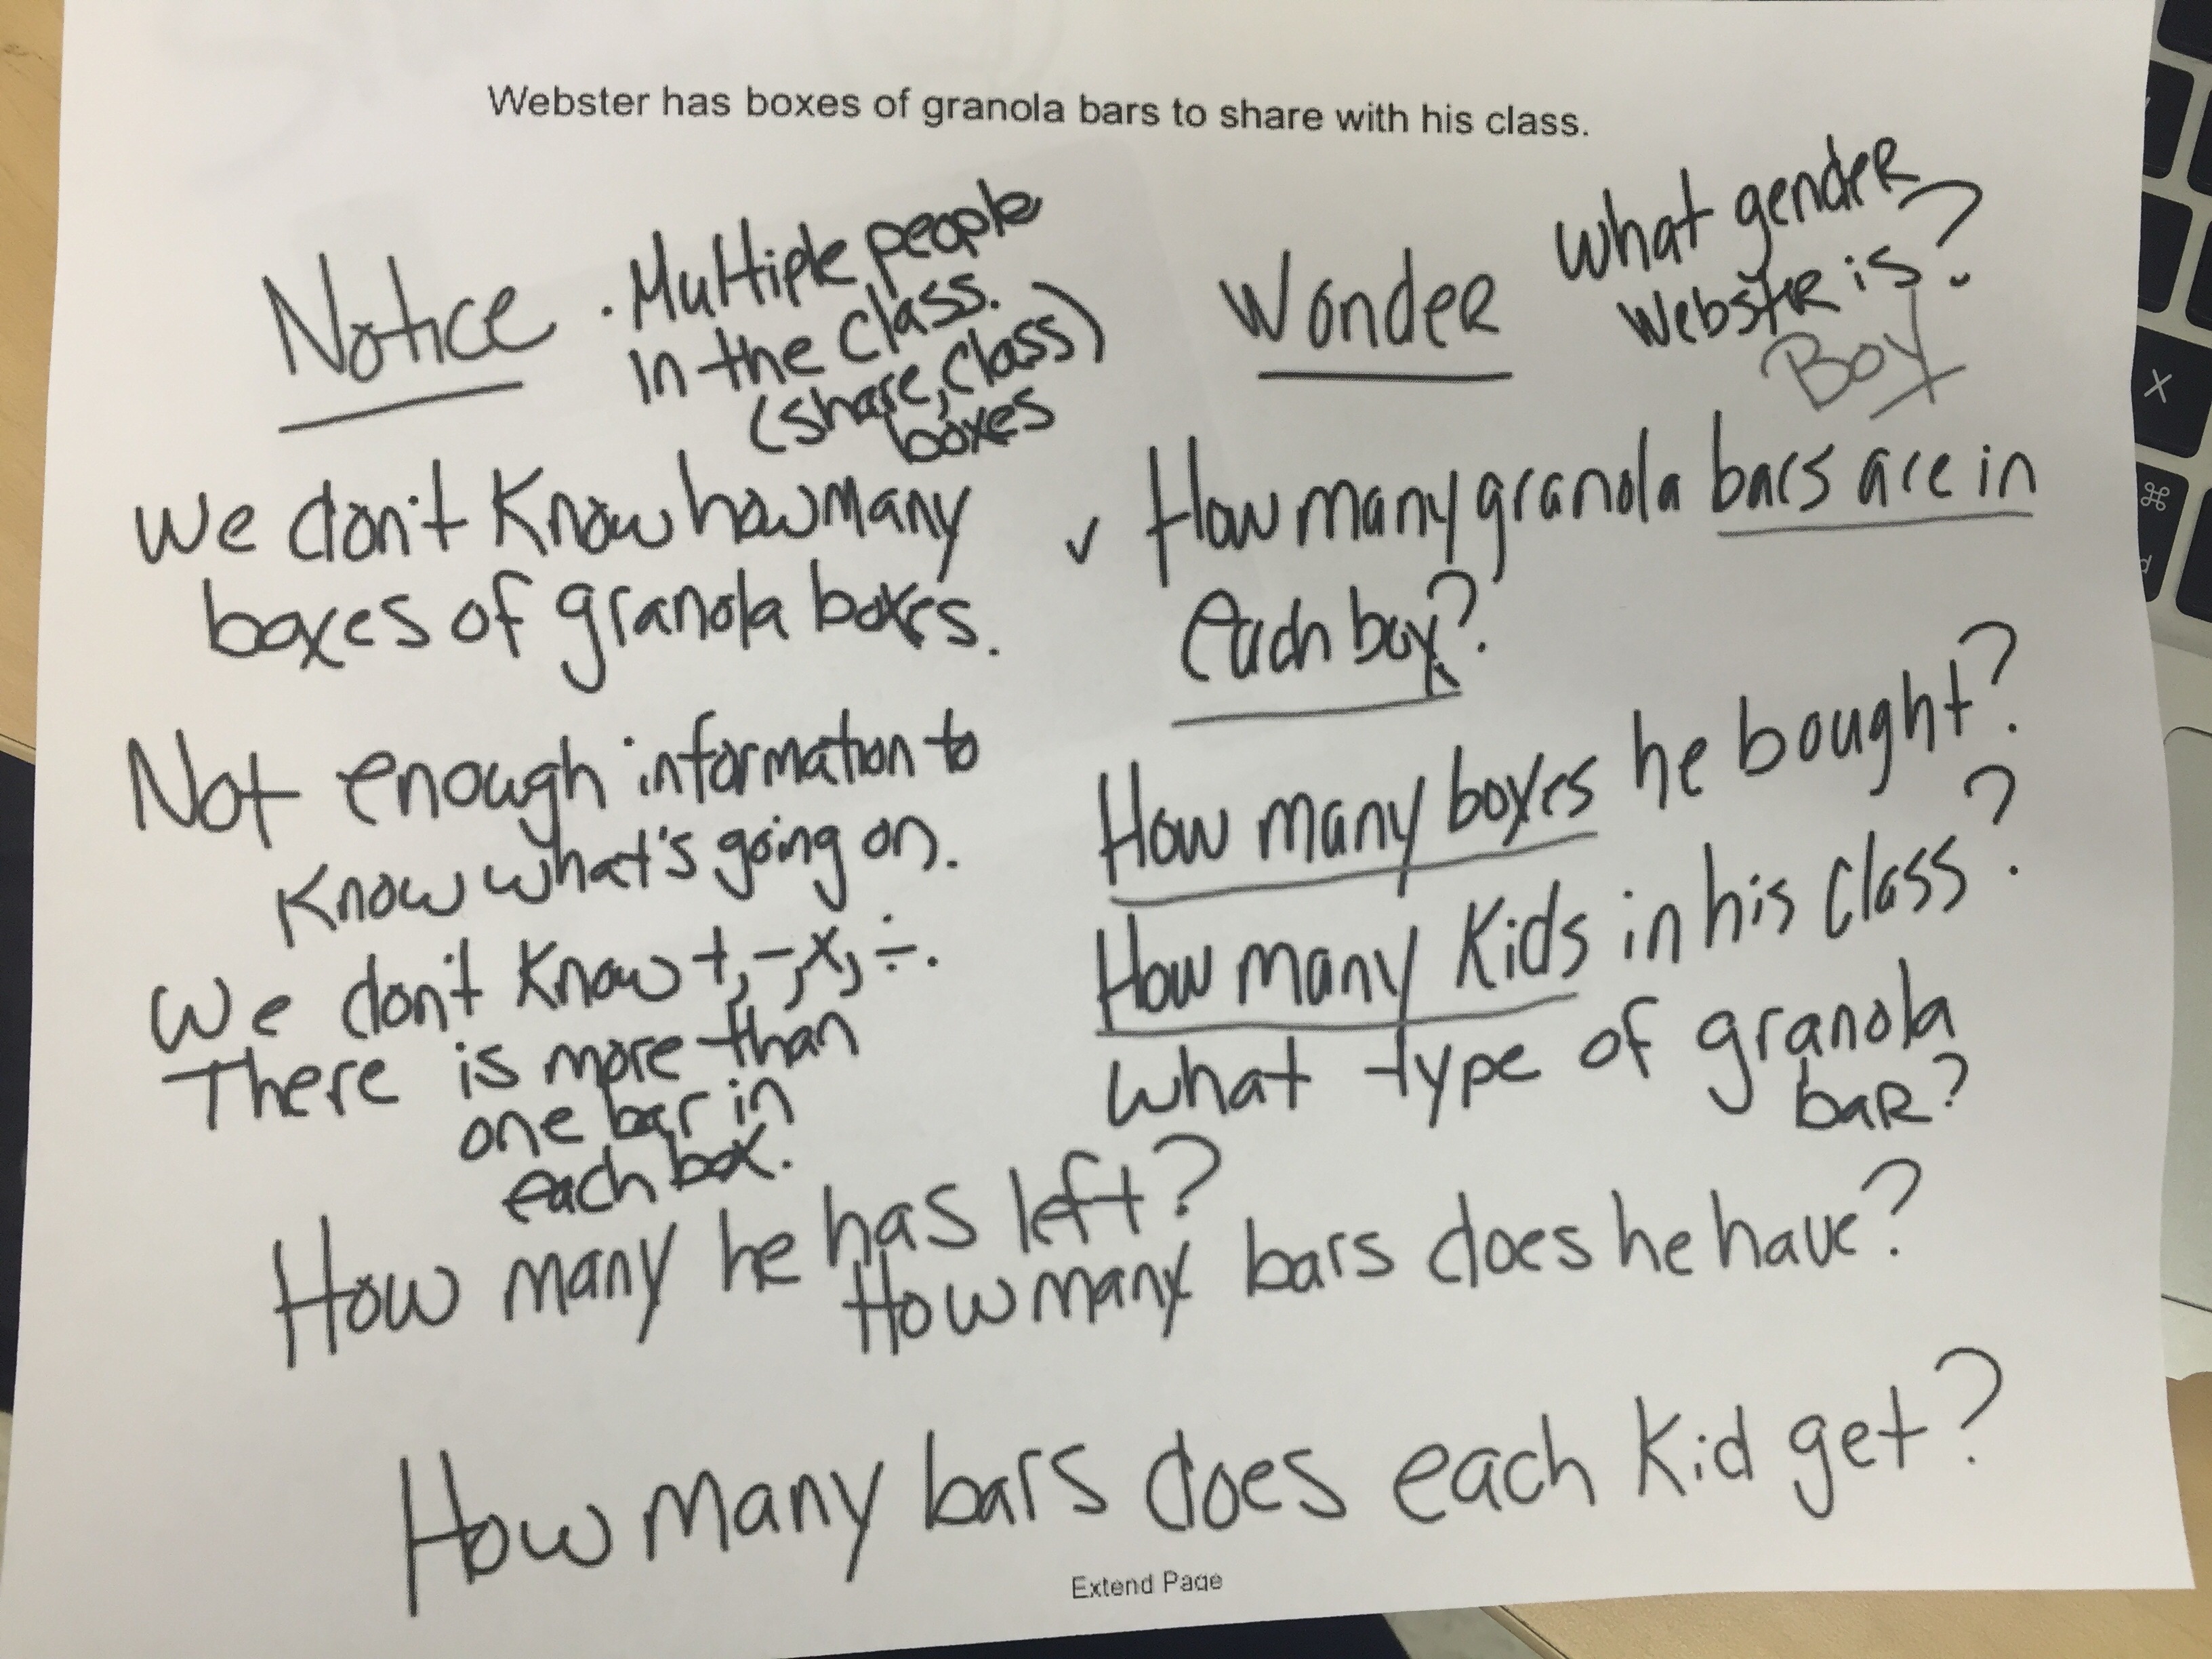 Webster has boxes of granola bars to share with his class.
Notice
. Multiple people
in the class.
(share, class)
boxes
We don't know how many
boxes of granola boxes.
Not enough information to
know what's going on.
We don't know +, -, x, ÷.
There is more than
one bar in
each box.
Wonder
What gender
Webster is?
Boy
✓ How many granola bars are in
each box?
How many boxes he bought?
How many kids in his class?
What type of granola
bar?
How many he has left?
How many bars does he have?
How many bars does each kid get?
Extend Page
X
⌘
d